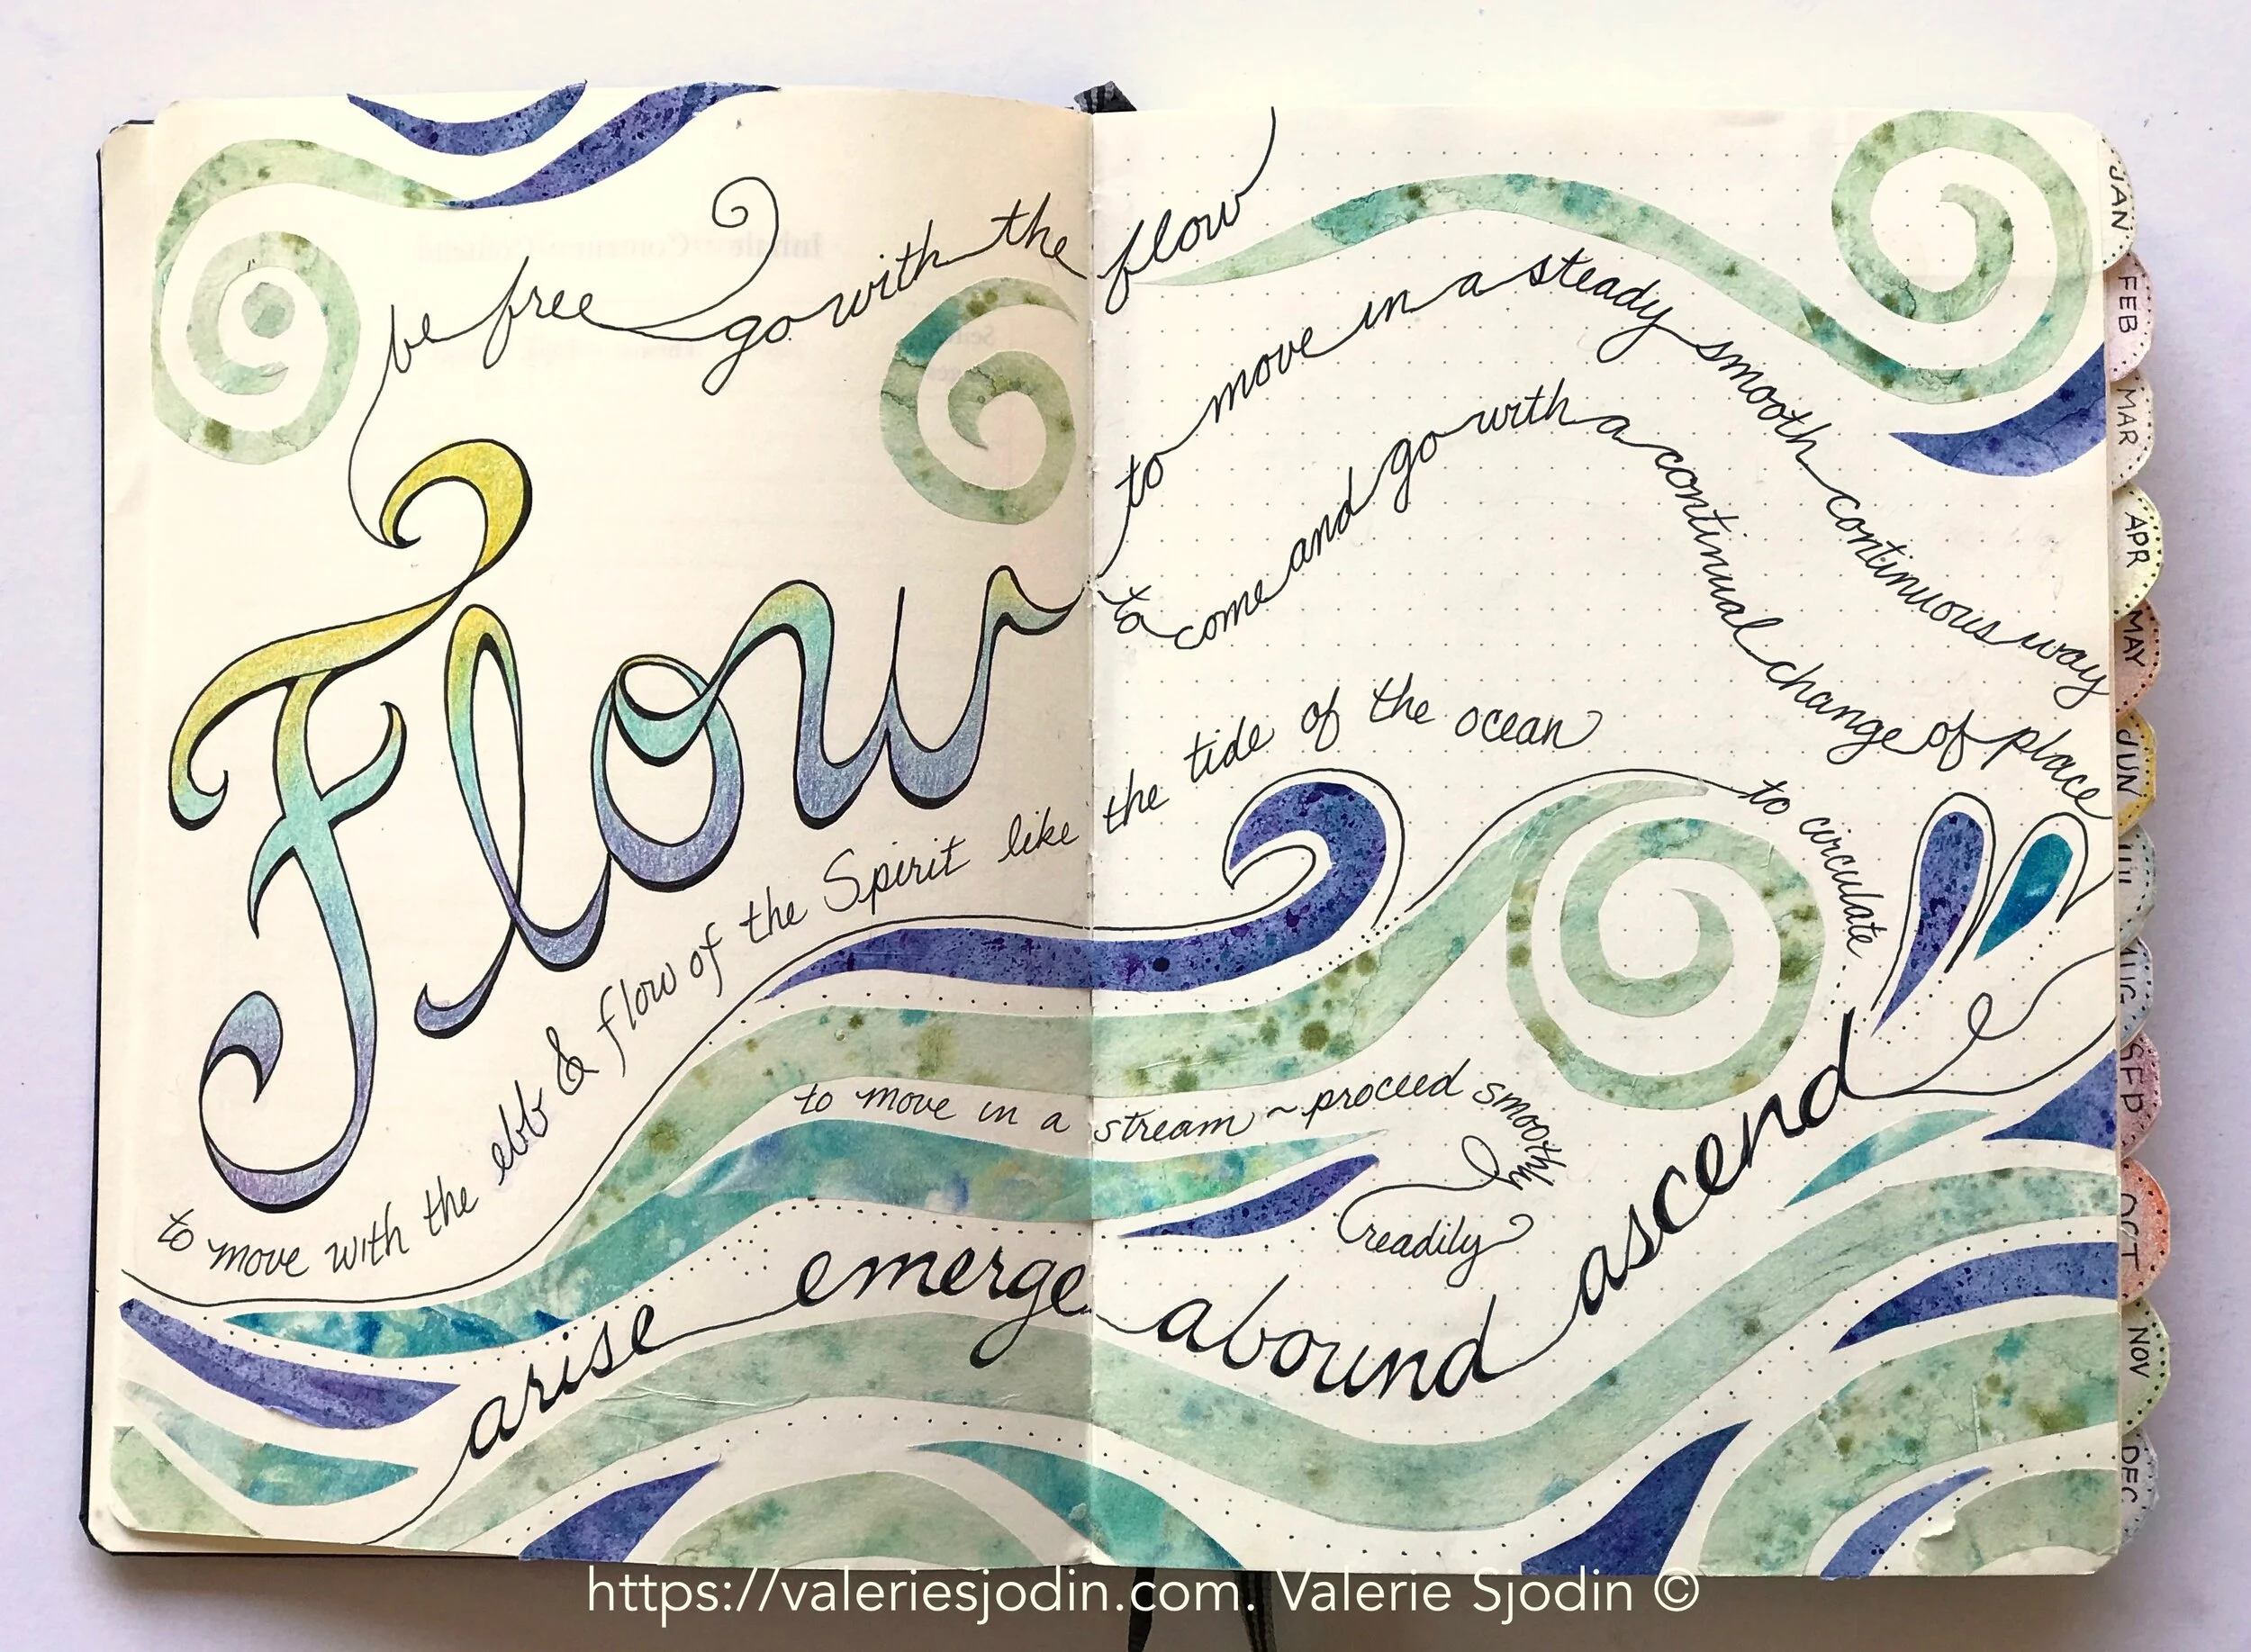 be free go with the flow
Flow
to move in a steady smooth continuous way
to come and go with a continual change of place
to move with the ebb & flow of the Spirit like the tide of the ocean
to circulate
to move in a stream ~ proceed smoothly
readily
arise emerge abound ascend
JAN
FEB
MAR
APR
MAY
JUN
JUL
AUG
SEP
OCT
NOV
DEC
https://valeriesjodin.com. Valerie Sjodin ©